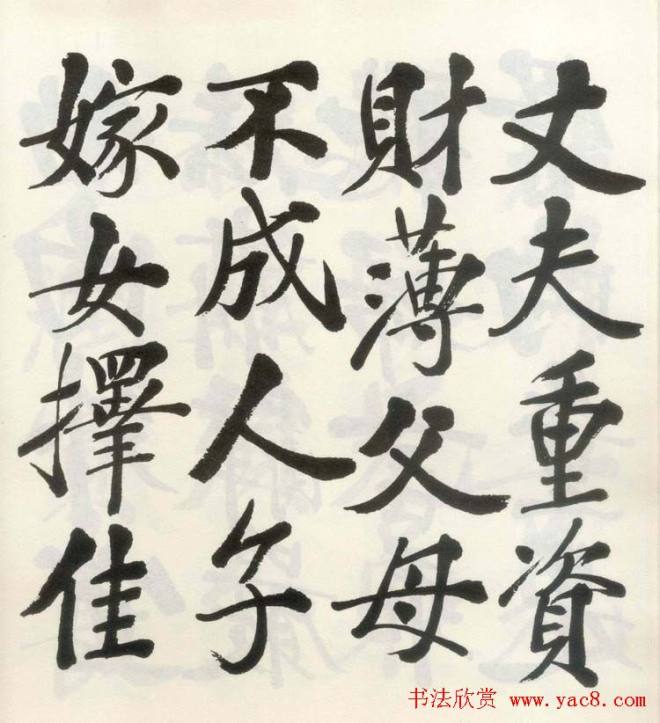 丈夫重資
財薄父母
不成人子
嫁女擇佳
书法欣赏 www.yac8.com